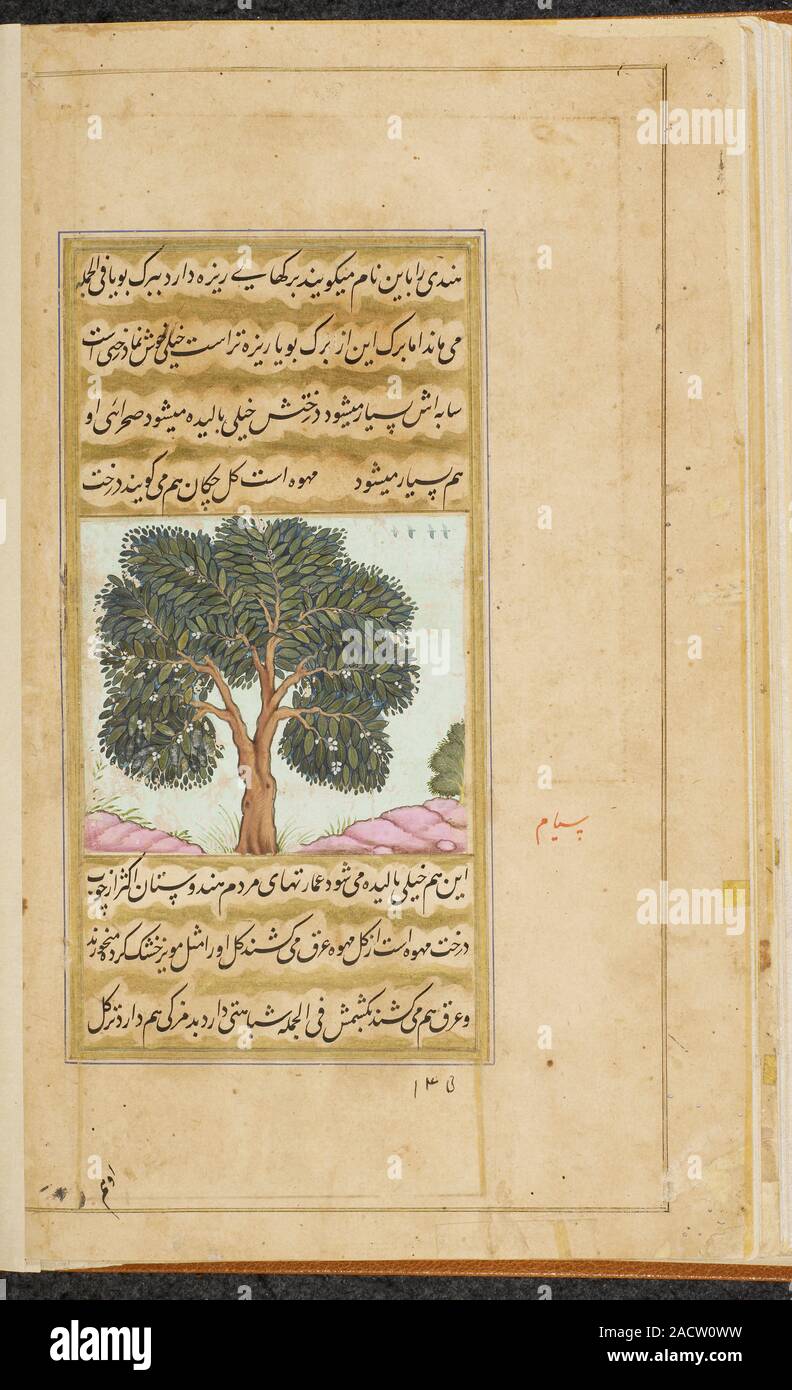 هندی را باین نام میکویند برکهایے ریزه دارد ببرک بویا فی الجمله
می ماند اما برک این از برک بویا ریزه تر است خیلی خوش نما درختی است
سایه اش بسیار میشود درختش خیلی بالیده میشود صحرائی او
هم بسیار میشود مهوه است کل چکان هم می کویند درخت
این هم خیلی بالیده می شود عمارتهای مردم هندوستان اکثر از چوب
درخت مهوه است از کل مهوه عرق می کشند کل او را مثل مویز خشک کرده میخورند
و عرق هم می کشند بکشمش فی الجمله شباهتی دارد بدمزکی هم دارد تر کل
او هم
alamy
alamy
alamy
alamy
Image ID: 2ACW0WW
www.alamy.com